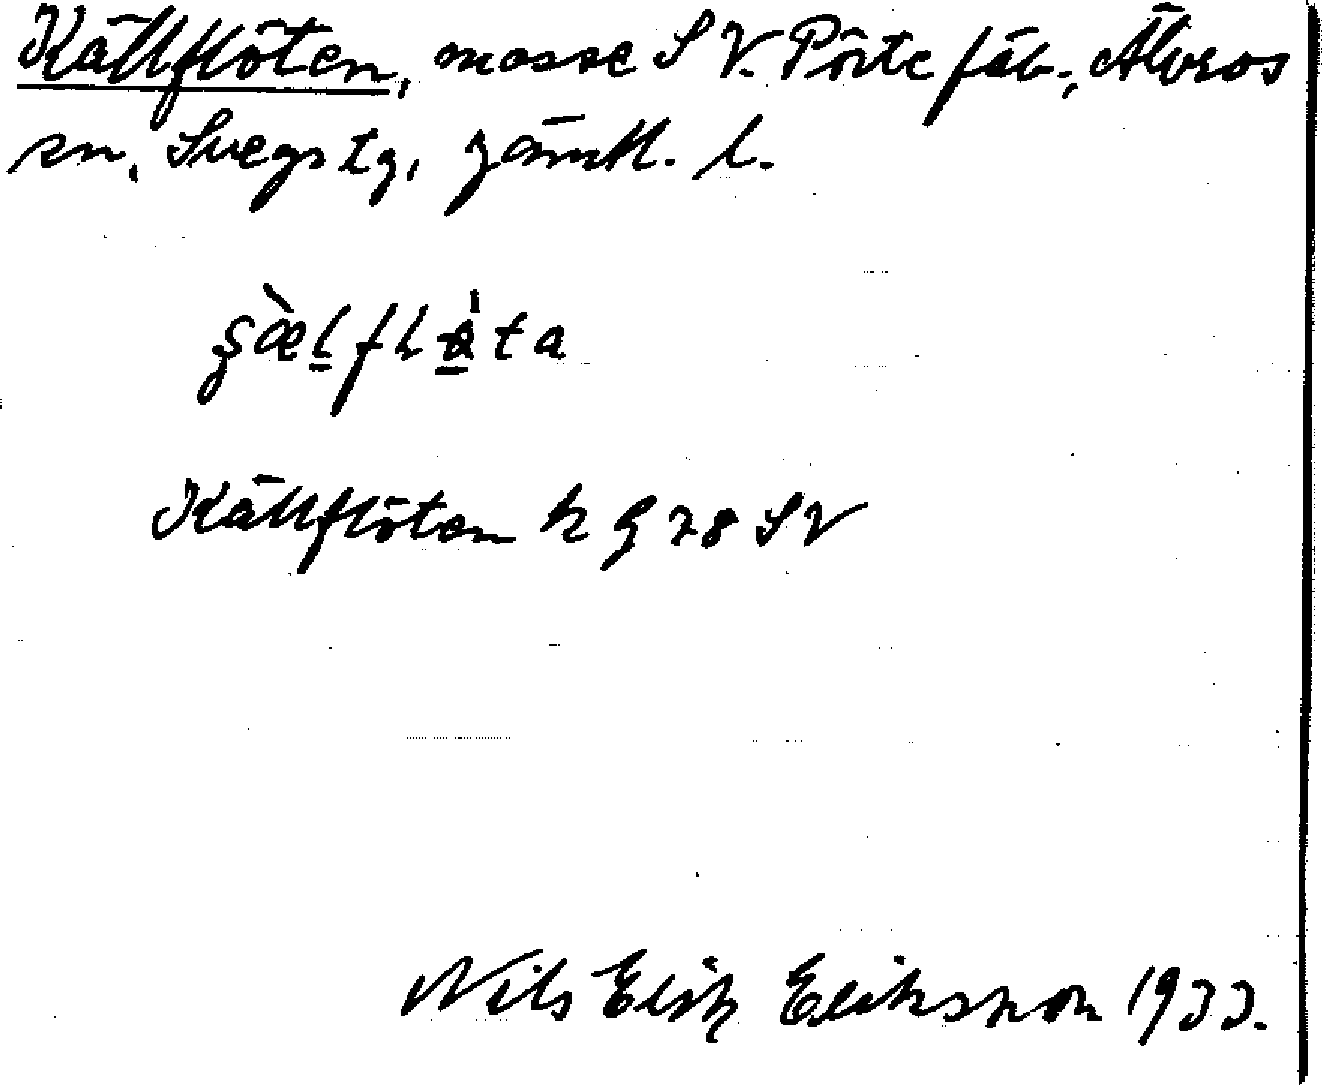 Källflöten, mosse SV. Pörte fäb., Älvros
sn, Svegs tg, Jämtl. l.
s̨æ̀l̲flå̲̀ta
Källflöten k G 78 SV
Nils Erik Eriksson 1933.